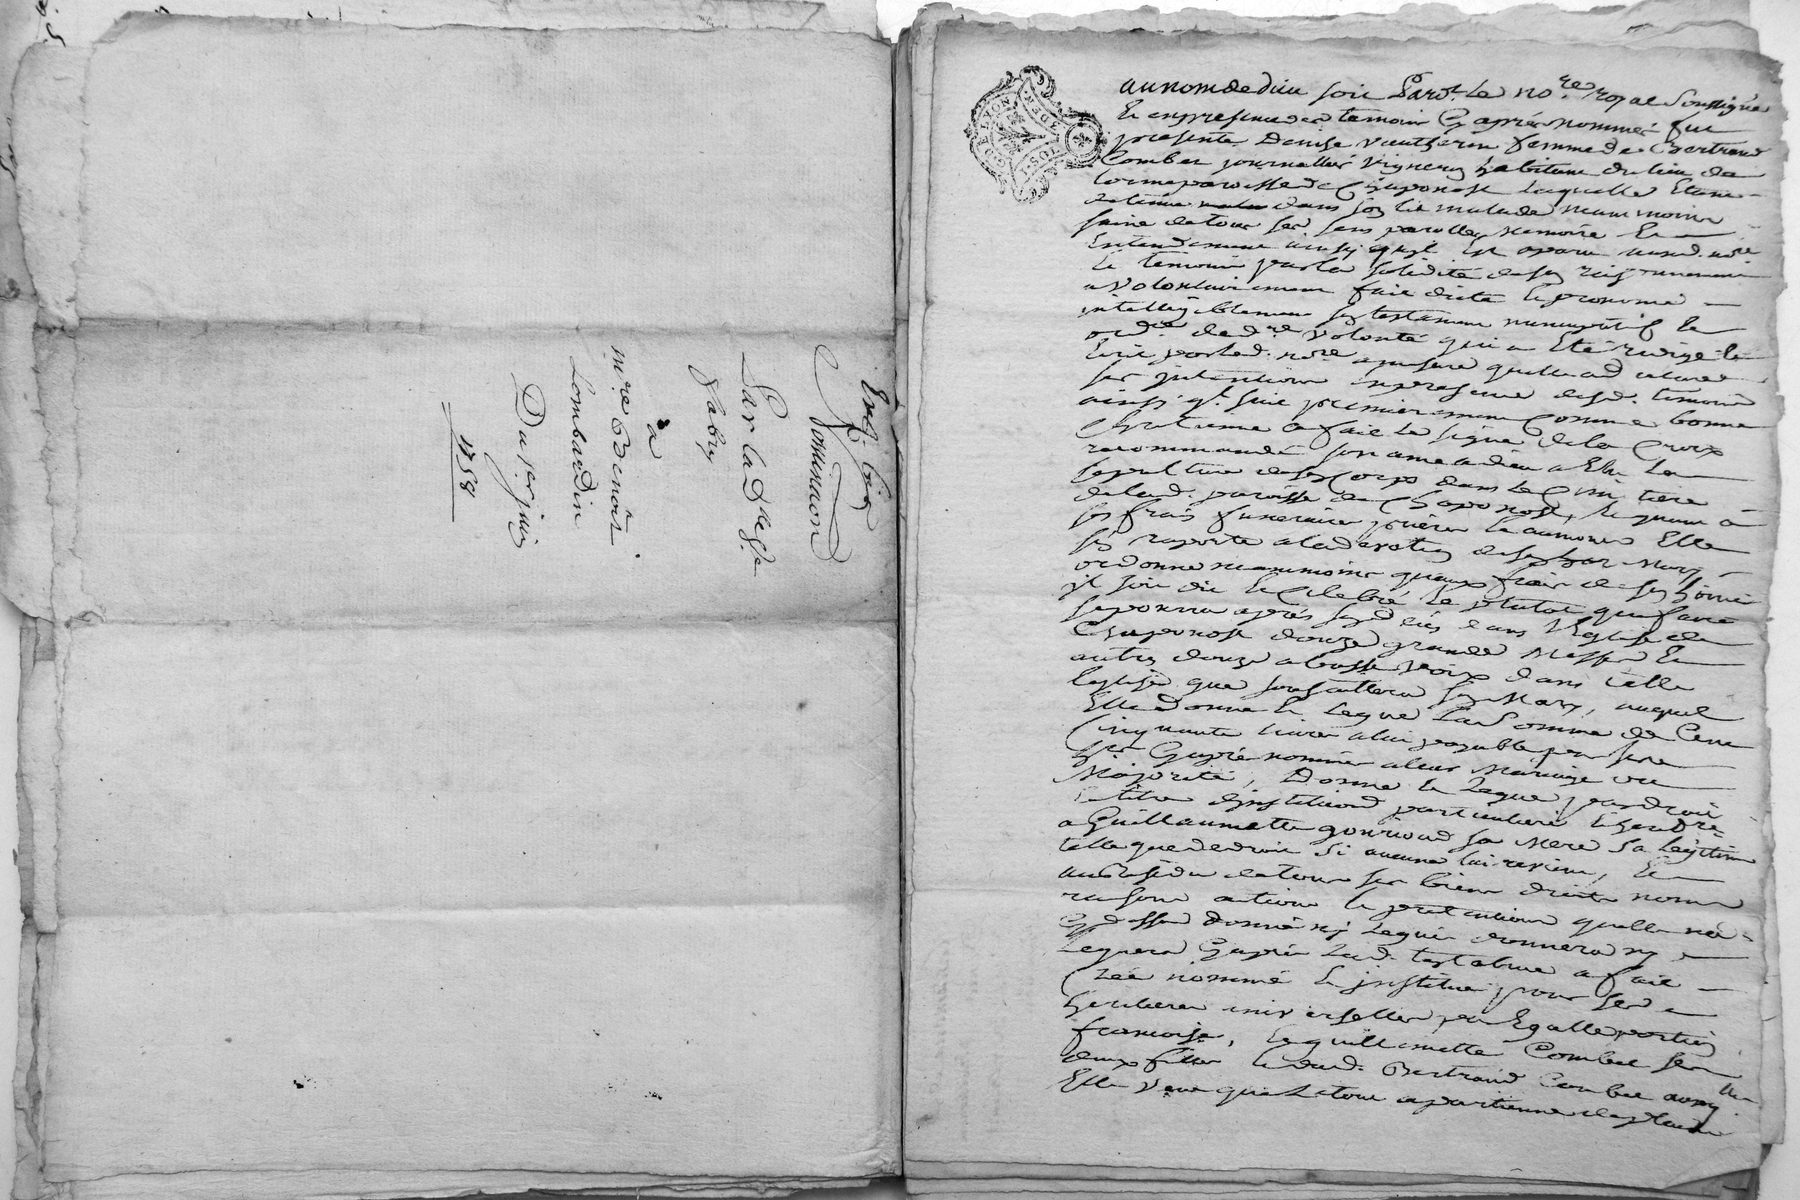 Nomination
Par la D.lle
Fabry
a
m.re Benoist
Lombardin
Du 1er juin
1758
GD LYON
2.SOLS
au nom de dieu soit Par.t le no.re royal soussigné
Et en presence des temoins cy apres nommés fut
presente Denise vautherin femme de Bertrand
Combet journallier vigneron habitant du lieu de
paroisse de Chaponost laquelle Etant
detenue dans son lit malade neammoins
saine de tous ses sens parolle memoire Et
Entendement ainsy quil Est aparu aud. no.re
Et temoins par la solidité de son raisonnement
a volontairement fait dicté Et prononcé
intelligiblement son testament nuncupatif Et
ord.ce de d.re volonté qui a Eté redigé Et
Ecrit par led. no.re a mesure quelle a declaré
ses intentions en presence desd. temoins
ainsy q.l suit premierement Comme bonne
Chretienne a fait le signe de la Croix
recommandé son ame a dieu a Elu la
sepulture de son Corps dans le Cimetiere
de lad. paroisse de Chaponost, Et quant a
ses frais funeraires prieres Et aumones Elle
s'en raporte a la devotion de son Mary
ordonne neammoins quaux frais de son hoirie
il soit dit Et Celebré le plutot que faire
se pourra apres son deces dans l'Eglise de
Chaponost douze grandes Messes Et
autres douze a basse voix dans telle
Eglise que souhaittera son Mary, auquel
Elle donne Et Legue La Somme de Cent
Cinquante livres a lui payable par ses
h.res Cy apres nommés a leur Mariage ou
Majorité, Donne Et Legue par droit
Et titre d'institution particuliere Et hered.re
a Guillaumette gouvioud sa Mere sa legitime
telle que de droit si aucune lui revient, Et
au residu de tous ses biens droits noms
raisons actions Et pretentions quelle n'a
Cy dessus donné ny Legué donnera ny
Leguera Cy apres Lad. testatrice a fait
Créé nommé Et institué pour ses
heritieres universelles par Egalles portions
francoise, Et guillemette Combet ses
deux filles Et dud. Bertrand Combet
Elle veut que Le tout apartienne